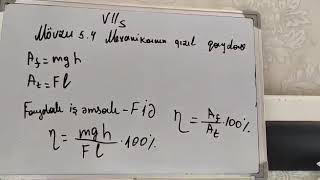 VII₅
Mövzu 5.4 Mexanikanın qızıl qaydası
A_f = mgh
A_t = Fl
Faydalı iş əmsalı - FİƏ
η = A_f/A_t · 100%
η = mgh/Fl · 100%